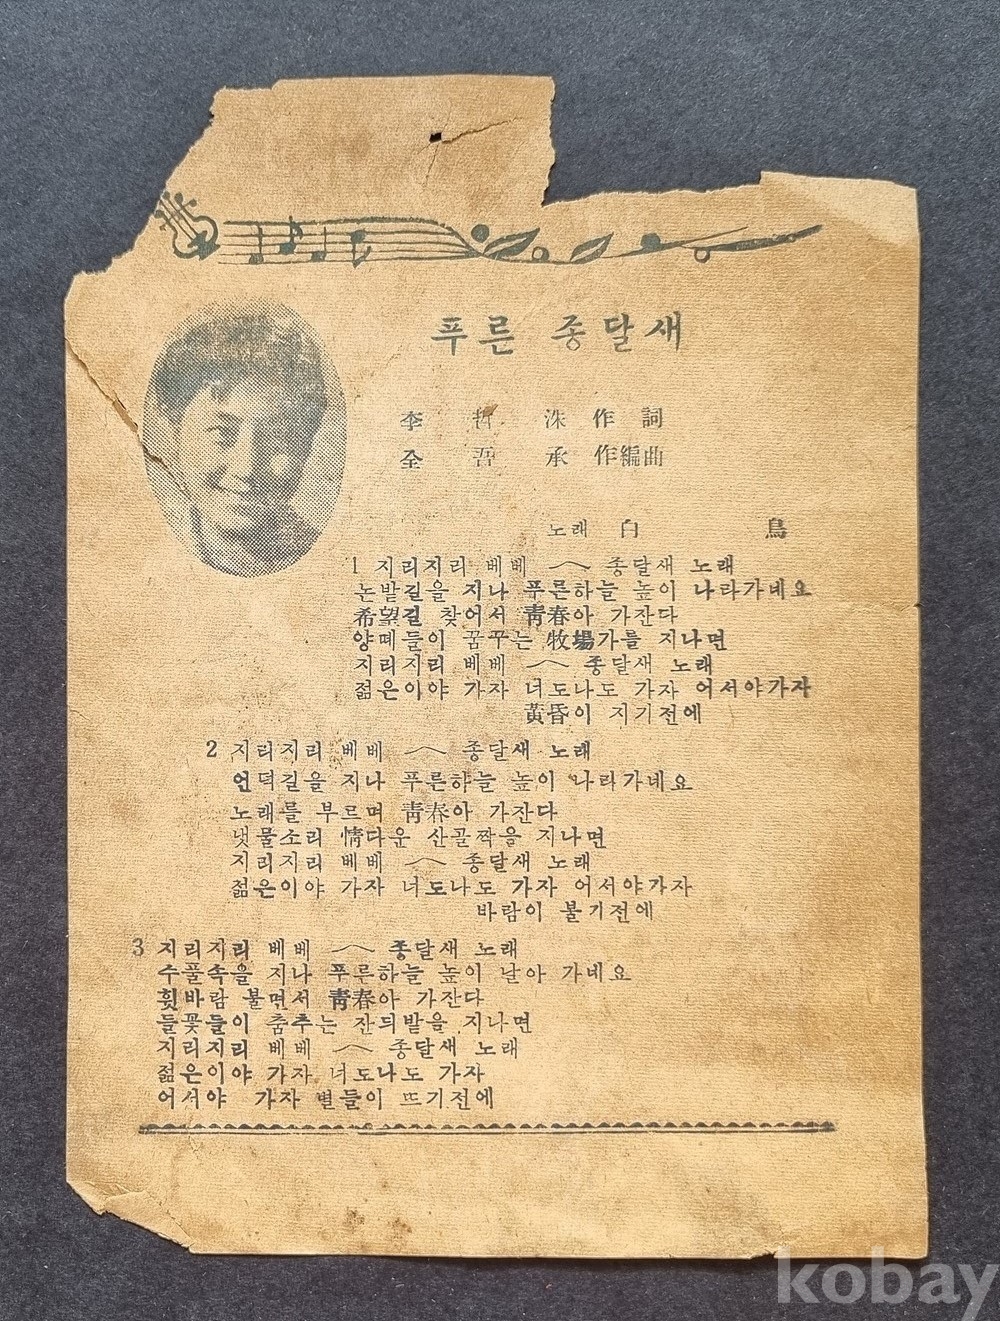 푸른 종달새
李 哲 洙 作 詞
全 吾 承 作編曲
노래 白 鳥
1 지리지리 베베 〈 종달새 노래
논밭길을 지나 푸른하늘 높이 나라가네요
希望길 찾어서 靑春아 가잔다
양떼들이 꿈꾸는 牧場가를 지나면
지리지리 베베 〈 종달새 노래
젊은이야 가자 너도나도 가자 어서야가자
黃昏이 지기전에
2 지리지리 베베 〈 종달새 노래
언덕길을 지나 푸른하늘 높이 나라가네요
노래를 부르며 靑春아 가잔다
냇물소리 情다운 산골짝을 지나면
지리지리 베베 〈 종달새 노래
젊은이야 가자 너도나도 가자 어서야가자
바람이 불기전에
3 지리지리 베베 〈 종달새 노래
수풀속을 지나 푸른하늘 높이 날아 가네요
휫바람 불면서 靑春아 가잔다
들꽃들이 춤추는 잔듸밭을 지나면
지리지리 베베 〈 종달새 노래
젊은이야 가자 너도나도 가자
어서야 가자 별들이 뜨기전에
kobay